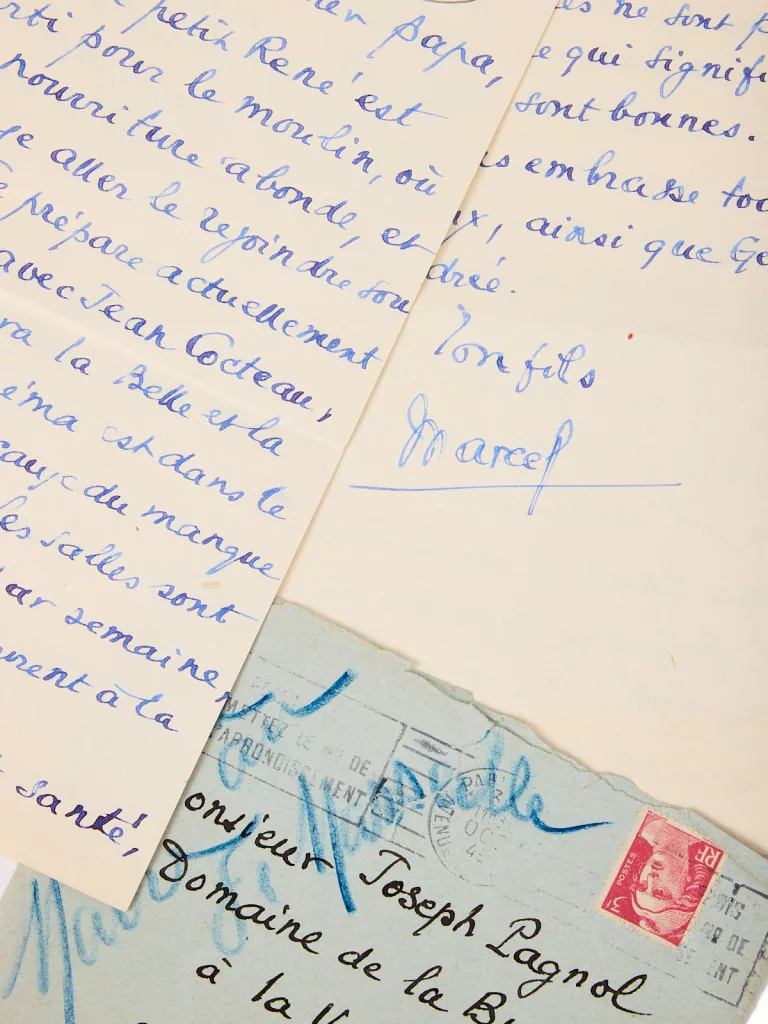 papa,
petit René est
pour le moulin, où
nourriture abonde, et
aller le rejoindre sou
prépare actuellement
avec Jean Cocteau,
ra la Belle et la
éma est dans le
du manque
les salles sont
ar semaine,
à la
santé,
es ne sont p
e qui signifi
sont bonnes.
embrasse
x, ainsi que Ge
drée.
Ton fils
Marcel
METTEZ LE No DE
L'ARRONDISSEMENT
PARIS
AVENUE
OC
Marseille
POSTES
RF
onsieur Joseph Pagnol
Domaine de la B
à la V
No DE